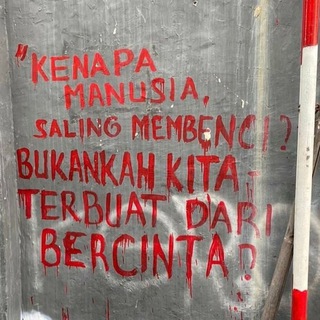 "KENAPA
MANUSIA,
SALING MEMBENCI?
BUKANKAH KITA
TERBUAT DARI
BERCINTA?